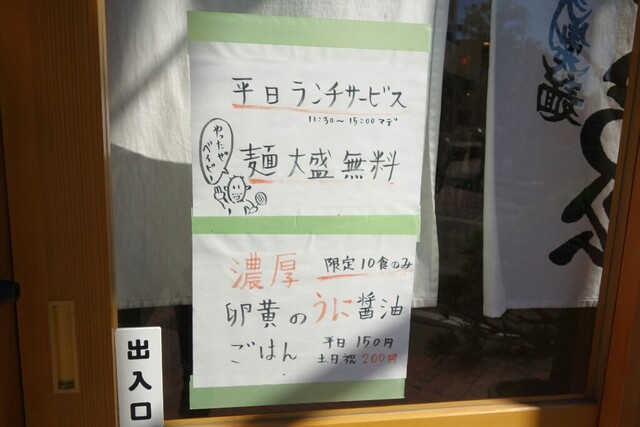 平日ランチサービス
11:30〜15:00マデ
やったぜ
ベイベー
麺大盛無料
濃厚 限定10食のみ
卵黄のうに醤油
ごはん 平日150円
土日祝200円
出入口